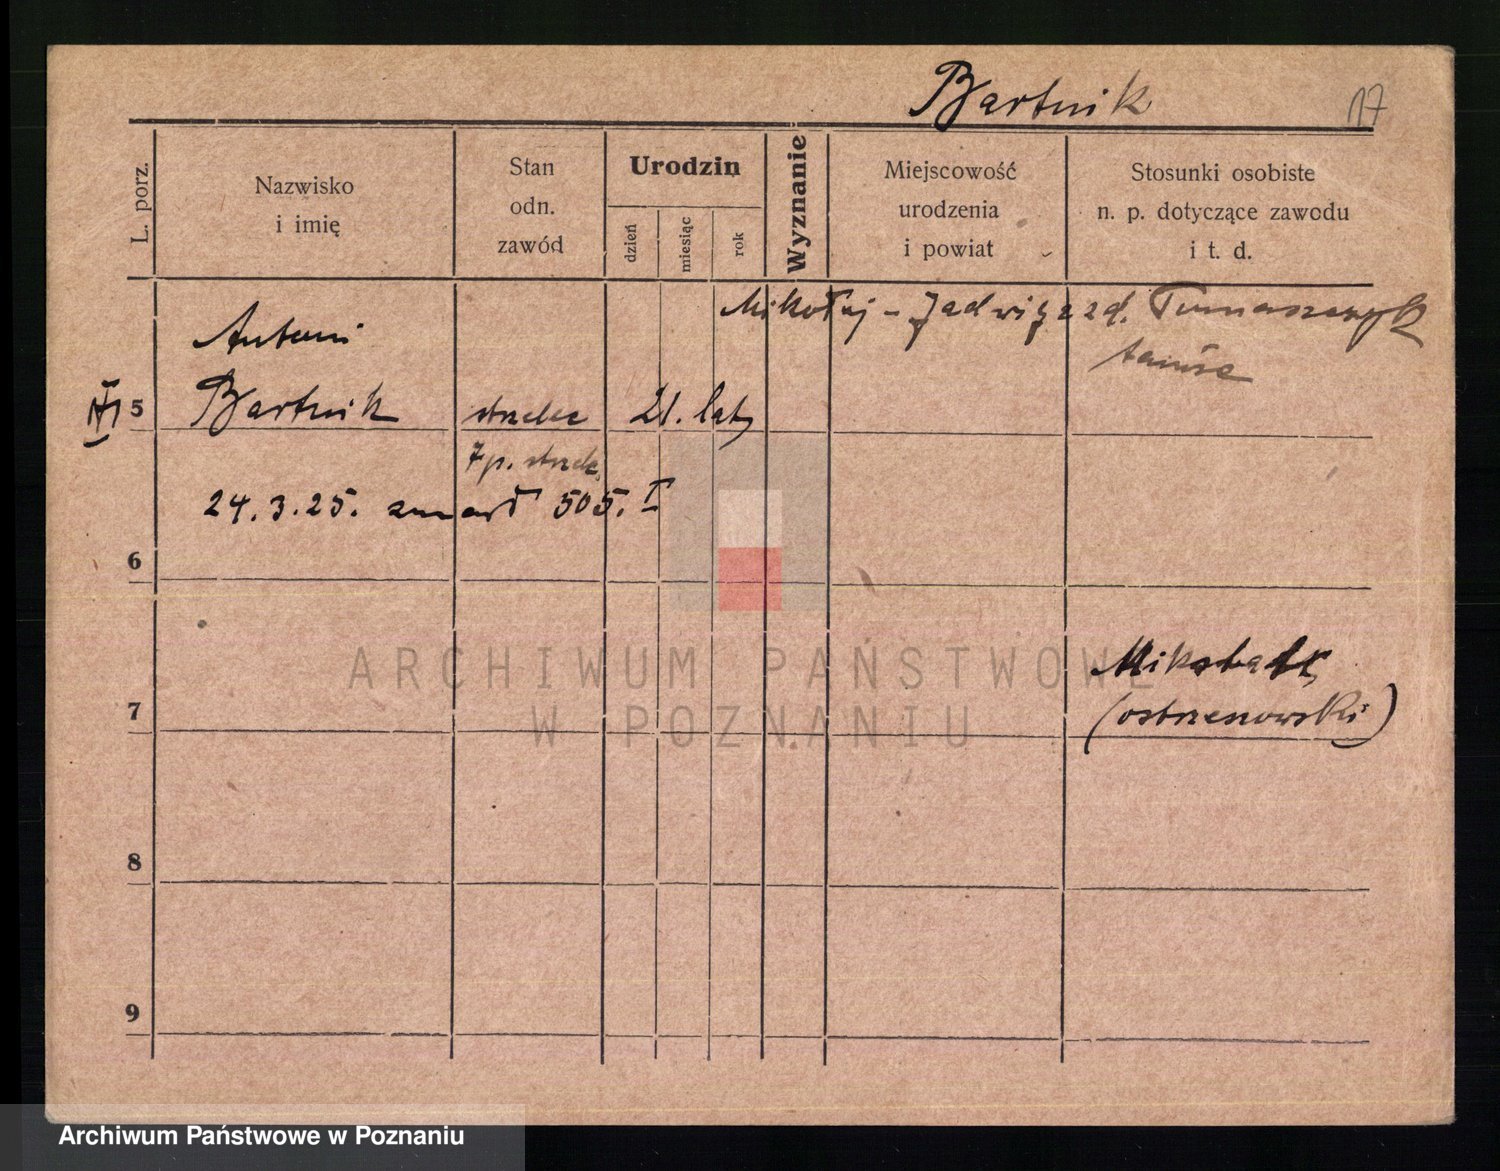 Bartnik
17
L. porz.
Nazwisko
i imię
Stan
odn.
zawód
Urodzin
dzień
miesiąc
rok
Wyznanie
Miejscowość
urodzenia
i powiat
Stosunki osobiste
n. p. dotyczące zawodu
i t. d.
Mikołaj - Jadwiga zd. Tomaszczyk
tamże
Antoni
5 Bartnik strzelec 21. lat
7 p. strzelc.
24.3.25. zmarł 505. I
6
Mikstat,
7 (ostrzeszowski)
8
9
ARCHIWUM PAŃSTWOWE
W POZNANIU
Archiwum Państwowe w Poznaniu